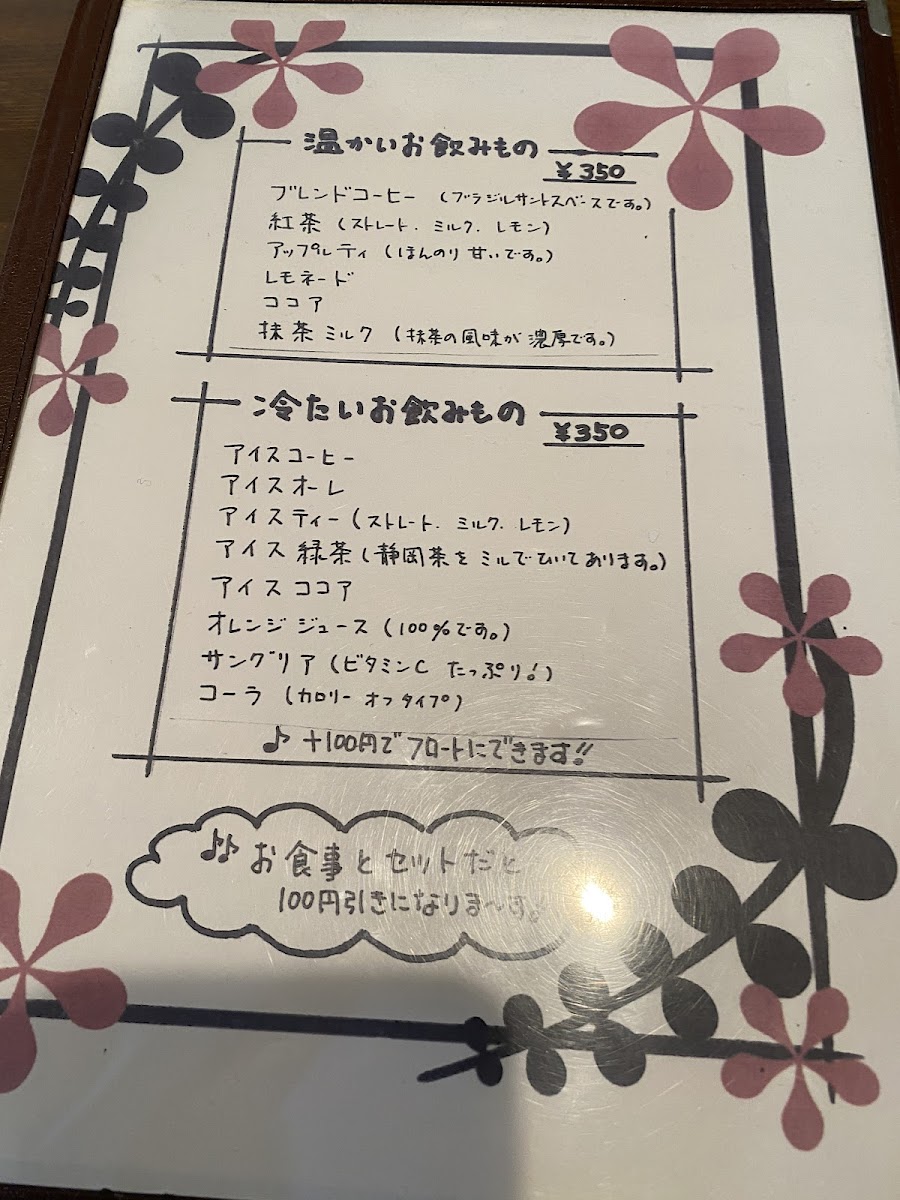 温かいお飲みもの
¥350
ブレンドコーヒー (ブラジルサントスベースです。)
紅茶 (ストレート. ミルク. レモン)
アップルティ (ほんのり甘いです。)
レモネード
ココア
抹茶ミルク (抹茶の風味が濃厚です。)
冷たいお飲みもの
¥350
アイスコーヒー
アイスオーレ
アイスティー (ストレート. ミルク. レモン)
アイス緑茶 (静岡茶をミルでひいてあります。)
アイスココア
オレンジジュース (100%です。)
サングリア (ビタミンC たっぷり!)
コーラ (カロリーオフタイプ)
♪ +100円でフロートにできます!!
♪♪ お食事とセットだと
100円引きになりま〜す♪